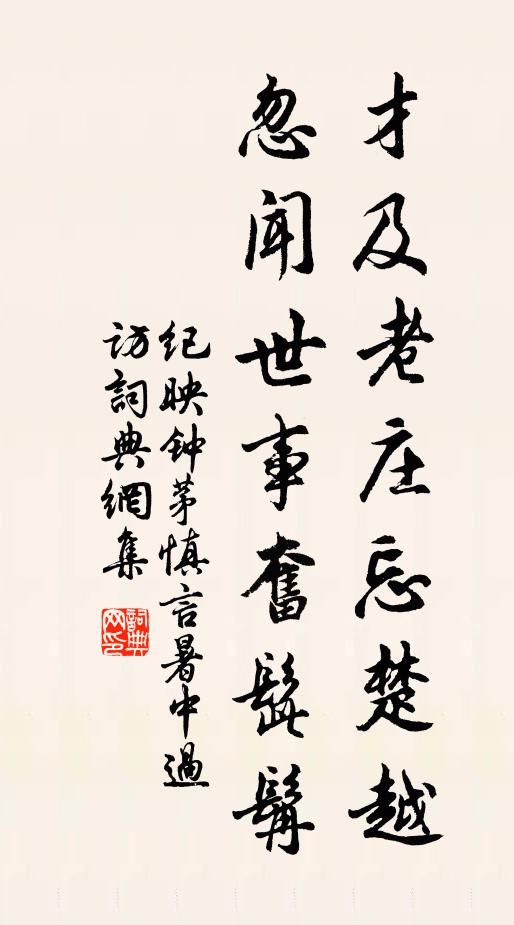 才及老庄忘楚越
忽闻世事奮髭髯
纪映钟茅慎言暑中過
访詞典網集
詞典网印